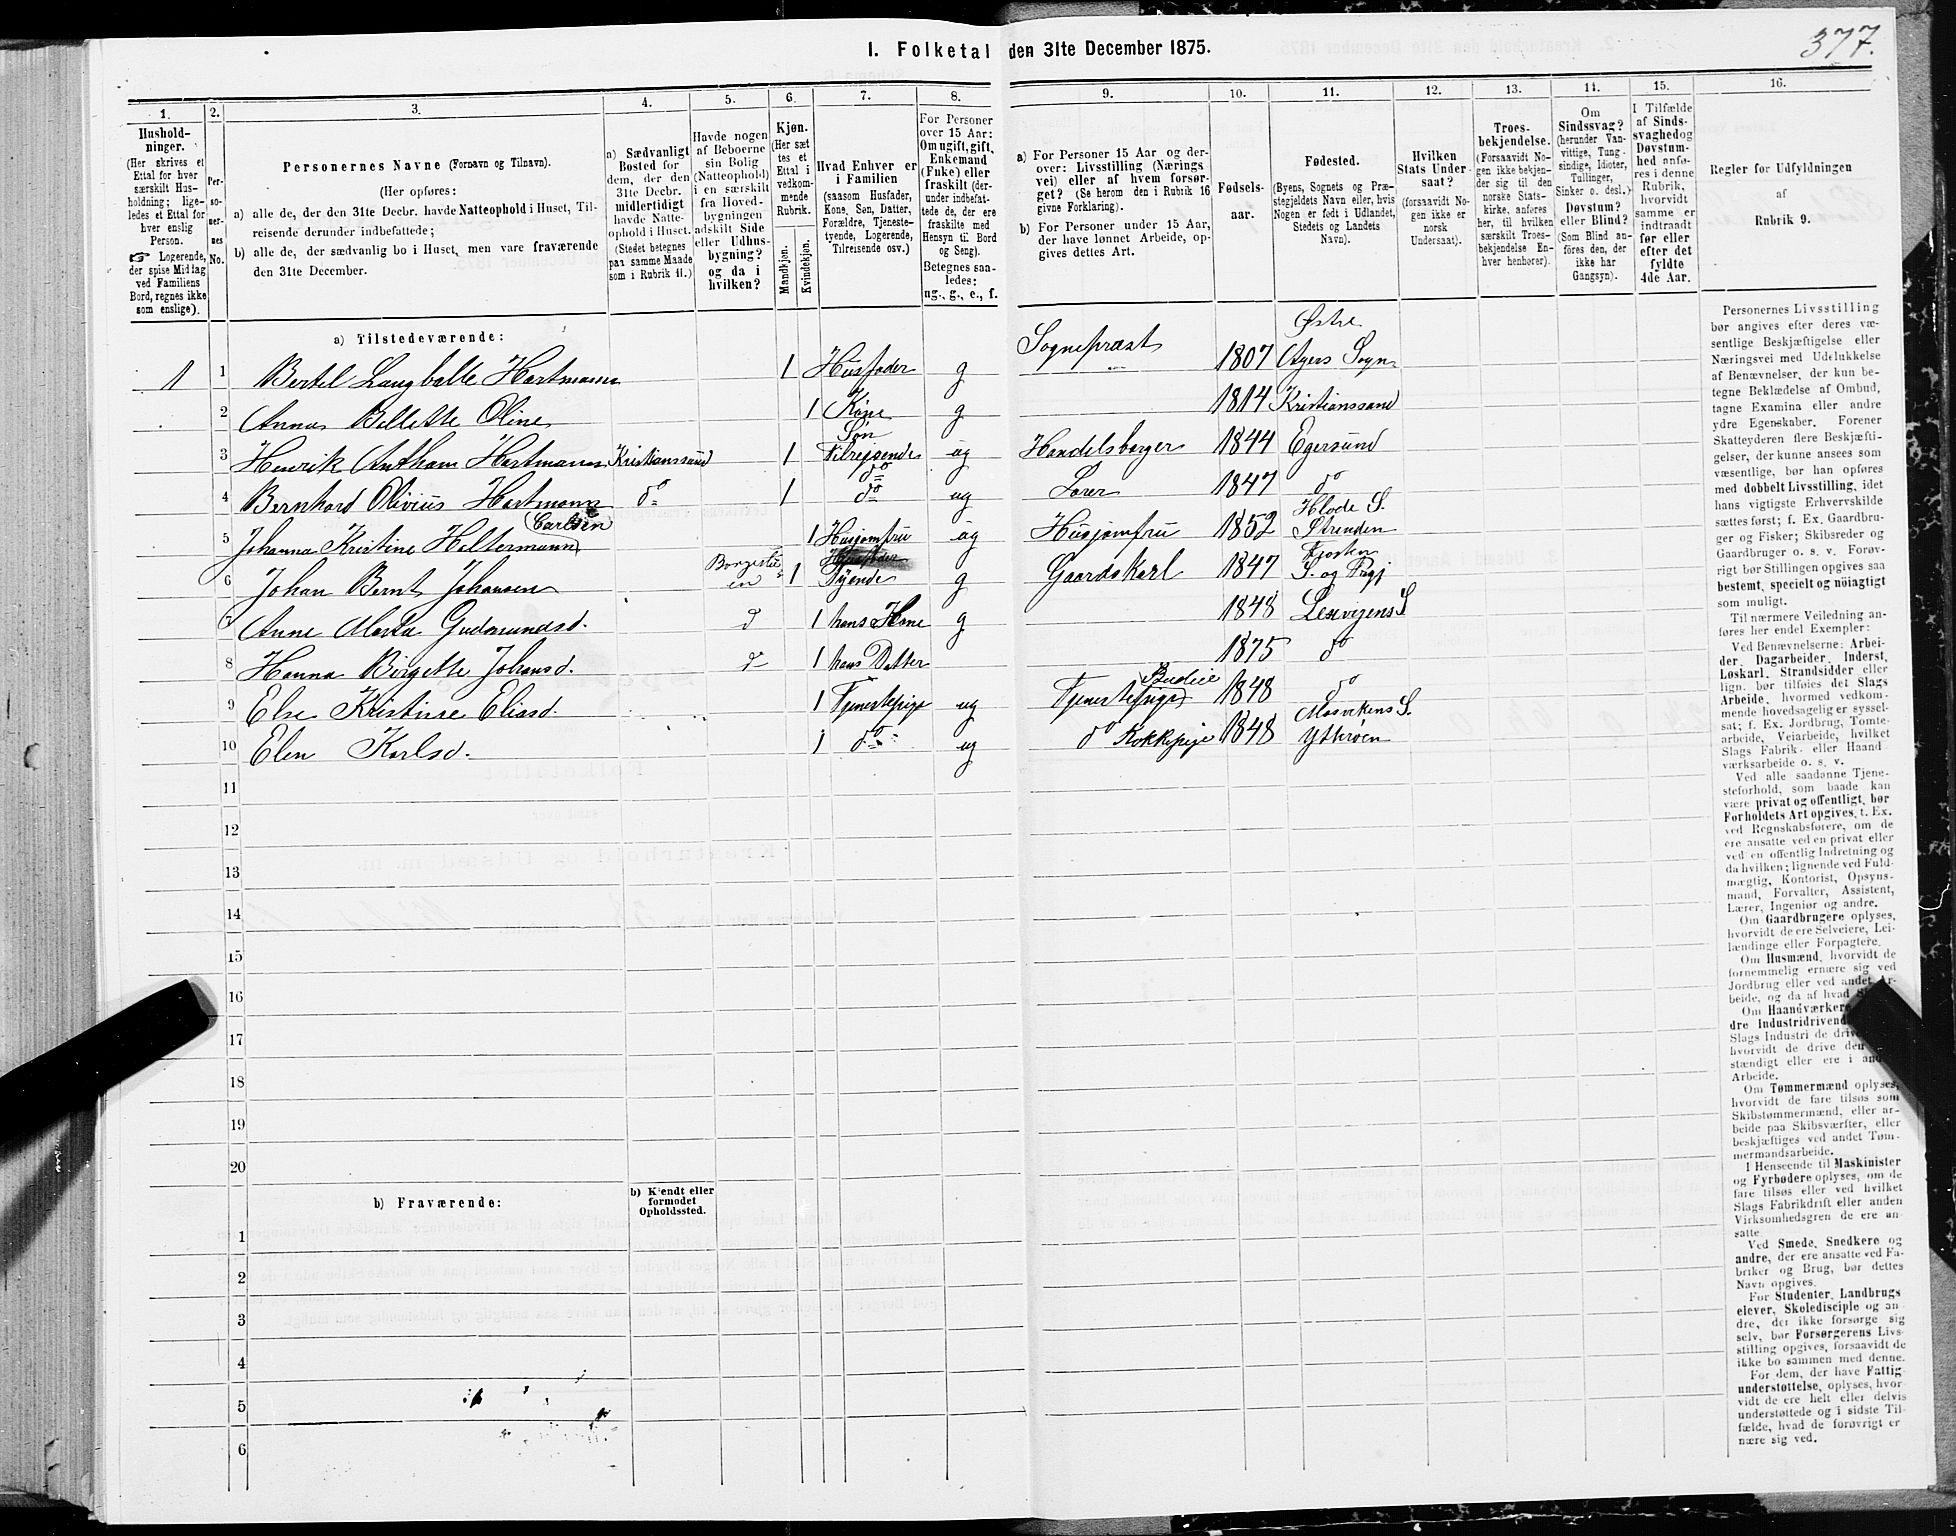 377.
I. Folketal den 31te December 1875.
1. 2. 3. 4. 5. 6. 7. 8. 9. 10. 11. 12. 13. 14. 15. 16.
Hushold-
ninger.
(Her skrives et
Ettal for hver
særskilt Hus-
holdning; lige-
ledes et Ettal for
hver enslig
Person.
☞ Logerende,
der spise Middag
ved Familiens
Bord, regnes ikke
som enslige).
Per-
so-
ner-
nes
No.
Personernes Navne (Fornavn og Tilnavn).
(Her opføres:
a) alle de, der den 31te Decbr. havde Natteophold i Huset, Til-
reisende derunder indbefattede;
b) alle de, der sædvanlig bo i Huset, men vare fraværende
den 31te December.
a) Sædvanligt
Bosted for
dem, der den
31te Decbr.
midlertidigt
havde Natte-
ophold i Huset.
(Stedet betegnes
paa samme Maade
som i Rubrik 11.)
Havde nogen
af Beboerne
sin Bolig
(Natteophold)
i en særskilt
fra Hoved-
bygningen
adskilt Side
eller Udhus-
bygning?
og da i
hvilken?
Kjøn.
(Her sæt
tes et
Ettal i
vedkom-
mende
Rubrik.
Mandkjøn.
Kvindekjøn.
Hvad Enhver er
i Familien
(saasom Husfader,
Kone, Søn, Datter,
Forældre, Tjeneste-
tyende, Logerende,
Tilreisende osv.)
For Personer
over 15 Aar:
Om ugift, gift,
Enkemand
(Fuke) eller
fraskilt (der-
under indbefat-
tede de, der ere
fraskilte med
Hensyn til Bord
og Seng).
Betegnes saa-
ledes:
ug., g., e., f.
a) For Personer 15 Aar og der-
over: Livsstilling (Nærings
vei) eller af hvem forsør-
get? (Se herom den i Rubrik 16
givne Forklaring).
b) For Personer under 15 Aar,
der have lønnet Arbeide, op-
gives dettes Art.
Fødsels-
aar.
Fødested.
(Byens, Sognets og Præ-
stegjeldets Navn eller, hvis
Nogen er født i Udlandet,
Stedets og Landets
Navn).
Hvilken
Stats Under-
saat?
(forsaavidt No-
gen ikke er
norsk
Undersaat).
Troes-
bekjendelse.
(Forsaavidt No-
gen ikke bekjen-
der sig til den
norske Stats-
kirke, anføres
her, til hvilken
særskilt Troes-
bekjendelse En-
hver henhører).
Om
Sindssvag?
(herunder Van-
vittige, Tung-
sindige, Idioter,
Tullinger,
Sinker o. desl.)
Døvstum?
eller Blind?
(Som Blind an-
føres den, der
ikke har
Gangsyn).
I Tilfælde
af Sinds-
svaghed og
Døvstum-
hed anfø-
res i denne
Rubrik,
hvorvidt
samme er
indtraadt
før eller
efter det
fyldte
4de Aar.
Regler for Udfyldningen
af
Rubrik 9.
a) Tilstedeværende:
1 1 Bertel Langballe Hartmann 1 Husfader g Sognepræst 1807 Østre Agers Sogn
2 Anna Billette Oline 1 Kone g 1814 Kristianssand
3 Henrik Hartmann Kristianssund 1 Søn Tilrejsende ug Handelsborger 1844 Egersund
4 Bernhard Olivius Hartmann do 1 do do ug Lærer 1847 do
5 Johanna Kristine Holtermann (Carlsen) 1 Husjomfru ug Husjomfru 1852 S. Strinden
6 Johan Bernt Johansen Borgestuen 1 Tyende g Gaardskarl 1847 S. og Prgj
7 Anne Marta Gudmundsd. d 1 hans Kone g 1848 Lexvigens S
8 Hanna Birgette Johansd. d 1 hans Datter 1875 do
9 Else Kristine Eliasd. 1 Tjenestepige ug Tjenestepige Budeie 1848 do
10 Elen Karlsd. 1 do ug do Kokkepige 1848 Mosvikens S. Ytterøen
11
12
13
14
15
16
17
18
19
20
b) Fraværende:
b) Kjendt eller
formodet
Opholdssted.
1
2
3
4
5
6
Personernes Livsstilling
bør angives efter deres væ-
sentlige Beskjæftigelse eller
Næringsvei med Udelukkelse
af Benævnelser, der kun be-
tegne Beklædelse af Ombud,
tagne Examina eller andre
ydre Egenskaber. Forener
Skatteyderen flere Beskjæfti-
gelser, der kunne ansees som
væsentlige, bør han opføres
med dobbelt Livsstilling, idet
hans vigtigste Erhvervskilde
sættes først; f. Ex. Gaardbru-
ger og Fisker; Skibsreder og
Gaardbruger o. s. v. Forøv-
rigt bør Stillingen opgives saa
bestemt, specielt og nøiagtigt
som muligt.
Til nærmere Veiledning an-
føres her endel Exempler:
Ved Benævnelserne: Arbei-
der, Dagarbeider, Inderst,
Løskarl, Strandsidder eller
lign. bør tilføies det Slags
Arbeide, hvormed vedkom-
mende hovedsagelig er syssel-
sat; f. Ex. Jordbrug, Tomte-
arbeide, Veiarbeide, hvilket
Slags Fabrik- eller Haand-
værksarbeide o. s. v.
Ved alle saadanne Tjene-
steforhold, som baade kan
være privat og offentligt, bør
Forholdets Art opgives, t. Ex.
ved Regnskabsførere, om de
ere ansatte ved en privat eller
ved en offentlig Indretning og
da hvilken; lignende ved Fuld-
mægtig, Kontorist, Opsyns-
mand, Forvalter, Assistent,
Lærer, Ingeniør og andre.
Om Gaardbrugere oplyses,
hvorvidt de ere Selveiere, Lei-
lændinge eller Forpagtere.
Om Husmænd, hvorvidt de
fornemmelig ernære sig ved
Jordbrug eller ved andet Ar-
beide, og da af hvad
Om Haandværkere
dre Industridrivend
Slags Industri de drive
hvorvidt de drive den
stændigt eller ere i an
Arbeide.
Om Tømmermænd oplyses,
hvorvidt de fare tilsøs som
Skibstømmermænd, eller ar-
beide paa Skibsværfter, eller
beskjæftiges ved andet Tøm-
mermandsarbeide.
I Henseende til Maskinister
og Fyrbødere oplyses, om de
fare tilsøs eller ved hvilket
Slags Fabrikdrift eller anden
Virksomhedsgren de ere an-
satte.
Ved Smede, Snedkere og
andre, der ere ansatte ved Fa-
briker og Brug, bør dettes
Navn opgives.
For Studenter, Landbrugs
elever, Skoledisciple og an-
dre, der ikke forsørge sig
selv, bør Forsørgerens Livs-
stilling opgives, forsaavidt de
ikke bo sammen med denne.
For dem, der have Fattig-
understøttelse, oplyses, hvor-
vidt de ere helt eller delvis
understøttede og i sidste Til-
fælde, hvad de forøvrigt er-
nære sig ved.